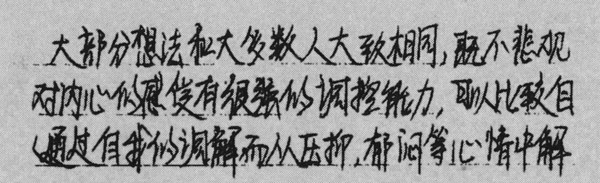 大部分想法和大多数人大致相同,既不悲观
对内心的感觉有很强的调控能力,可以比较自
通过自我的调解而从压抑,郁闷等心情中解